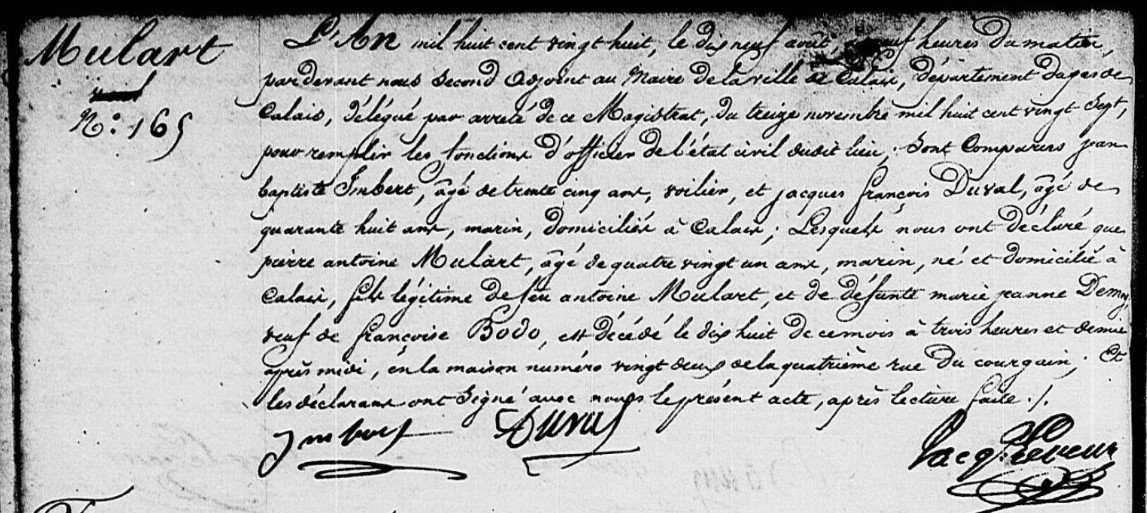 Mulart
N.° 165
L'An mil huit cent vingt huit, le dix neuf août, neuf heures du matin,
pardevant nous second adjoint au Maire de la ville de Calais, département du pas de
Calais, délégué par arreté de ce Magistrat, du treize novembre mil huit cent vingt sept,
pour remplir les fonctions d'officier de l'état civil dudit lieu; sont Comparus jean
baptiste Imbert, âgé de trente cinq ans, voilier, et jacques françois Duval, âgé de
quarante huit ans, marin, domiciliés à Calais; Lesquels nous ont déclaré que
pierre antoine Mulart, âgé de quatre vingt un ans, marin, né et domicilié à
Calais, fils légitime de feu antoine Mulart, et de défunte marie jeanne Demay
veuf de françoise Bodo, est décédé le dix huit de ce mois à trois heures et demie
après midi, en la maison numéro vingt deux de la quatrième rue du courgain; Et
les déclarans ont signé avec nous le présent acte, après lecture faite ./.
Imbert Duval
Jacq. Leveux